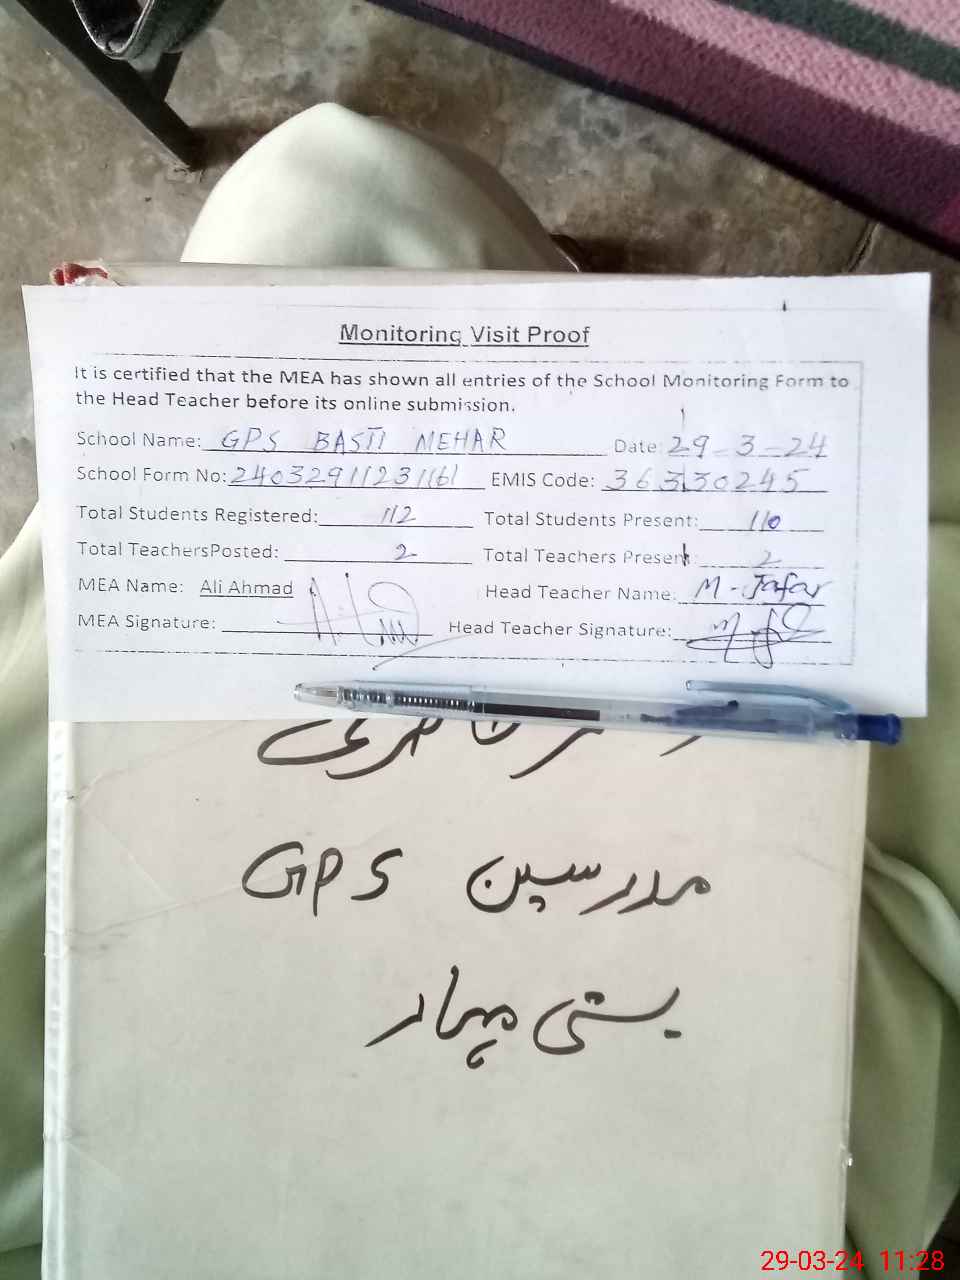 Monitoring Visit Proof
It is certified that the MEA has shown all entries of the School Monitoring Form to
the Head Teacher before its online submission.
School Name: GPS BASTI MEHAR Date: 29-3-24
School Form No: 240329112311161 EMIS Code: 36330245
Total Students Registered: 112 Total Students Present: 110
Total TeachersPosted: 2 Total Teachers Present: 2
MEA Name: Ali Ahmad Head Teacher Name: M-Jafar
MEA Signature: Head Teacher Signature:
مدرسین GPS
بستی مہار
29-03-24 11:28